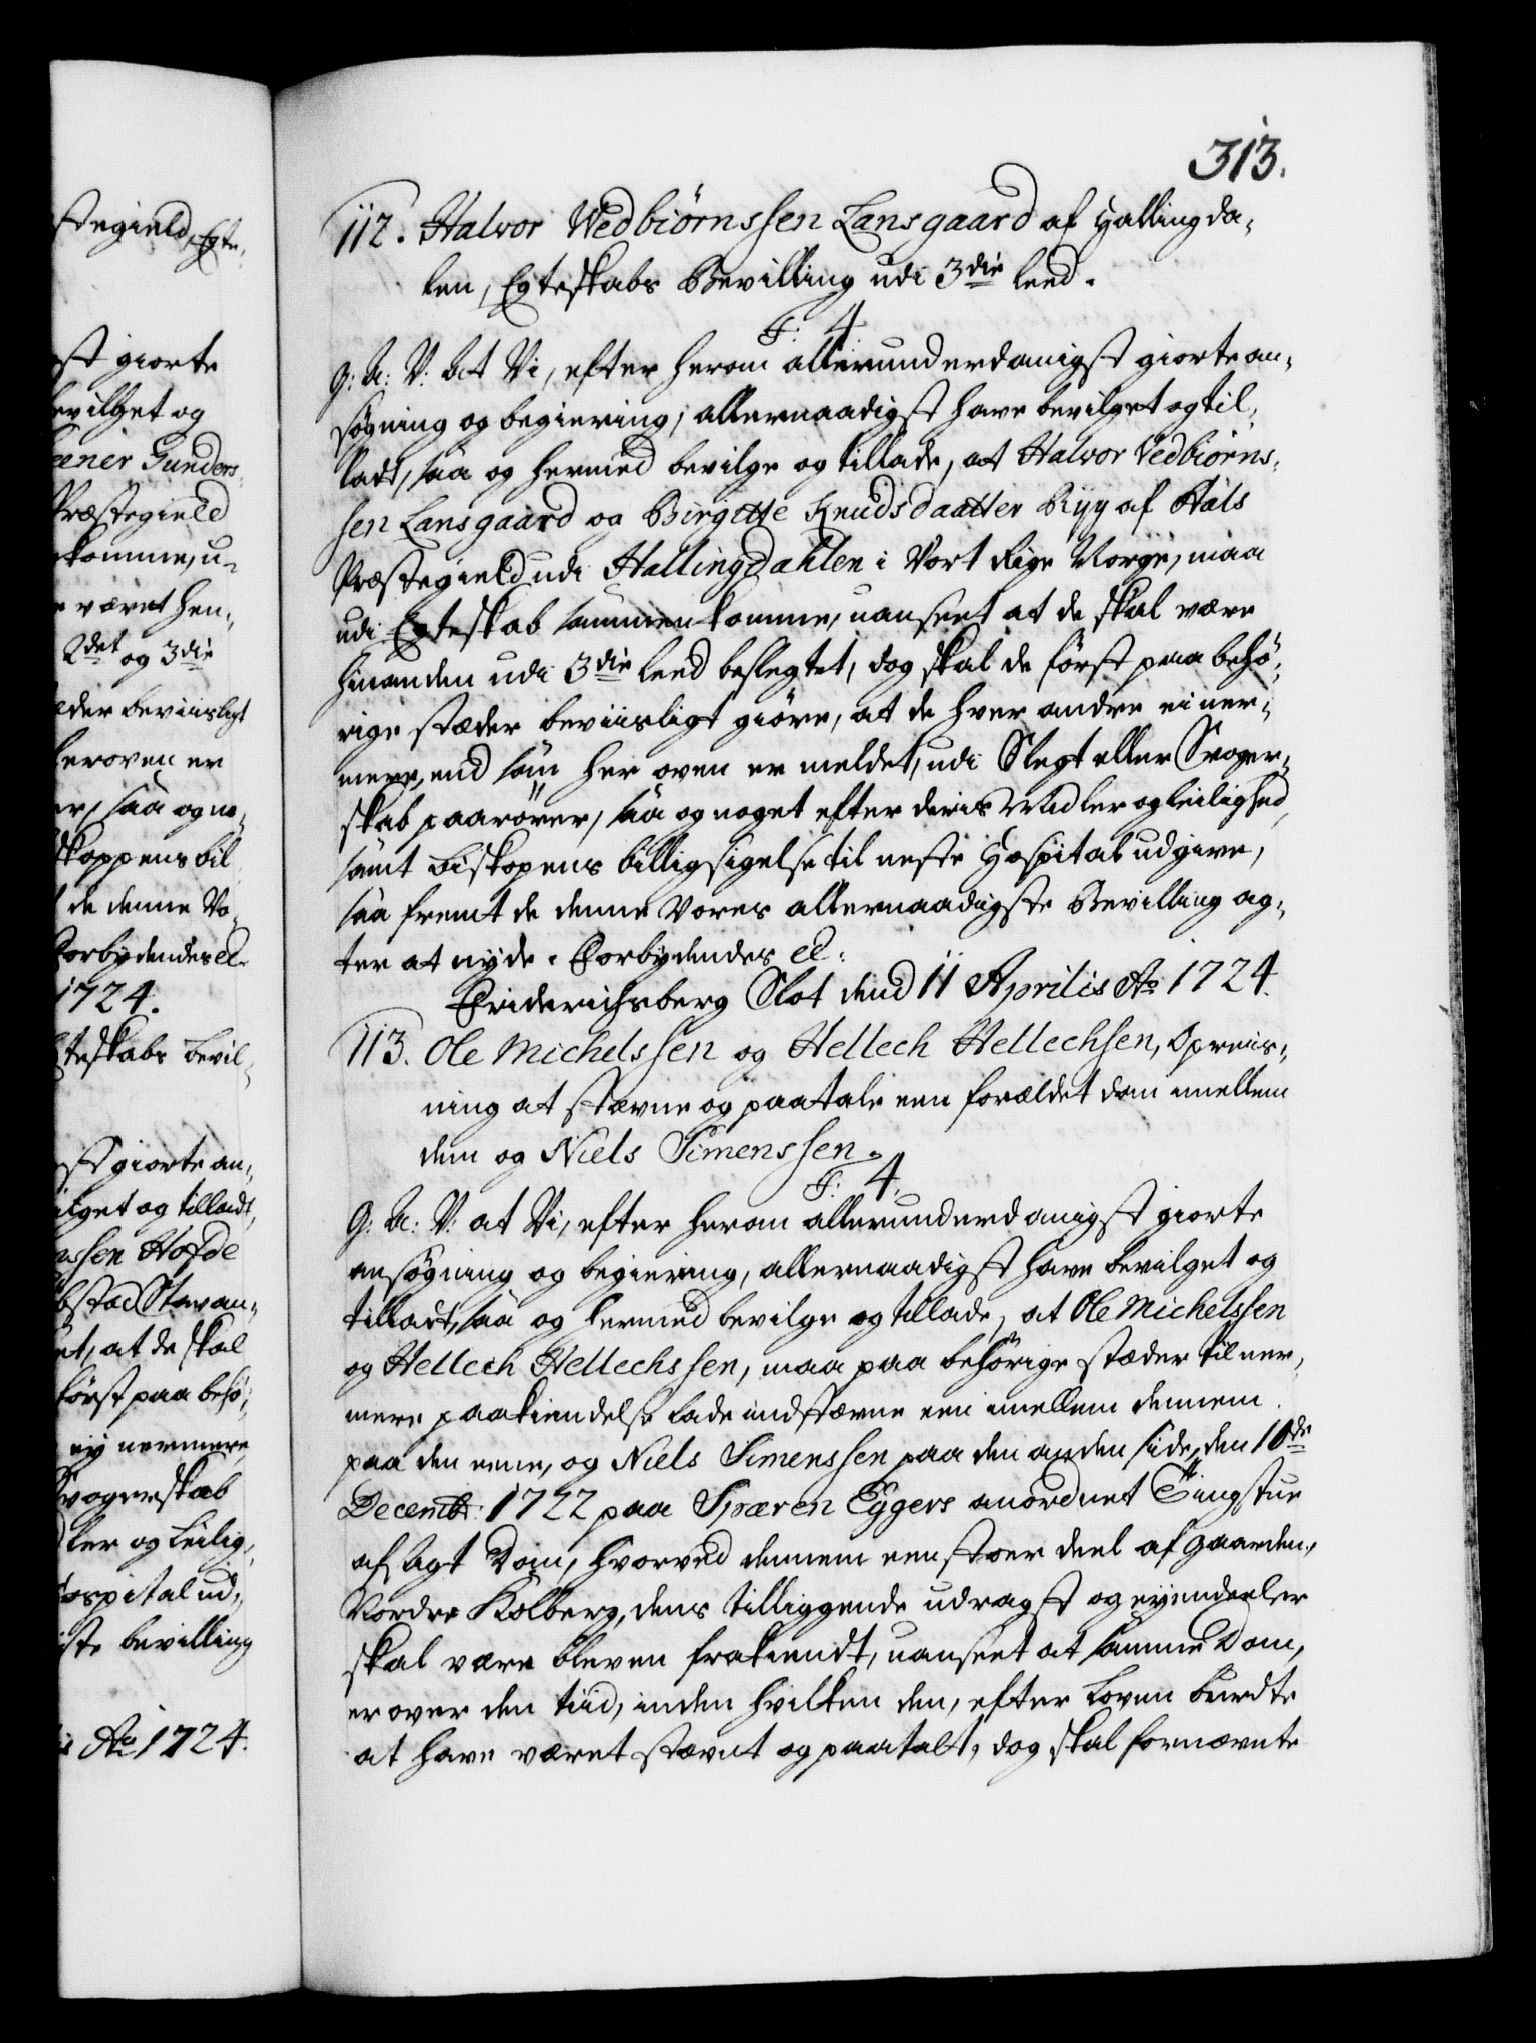 stegield, Egte-
st giorte
bevilget og
eener Gunders-
Præstegield
komme, u-
e været hen-
2det og 3die
æder beviisligt
heroven er
er, saa og no-
skoppens bil-
de denne Vo-
Forbydendes el.
1724.
teskabs bevil-
st giorte an-
ilget og tilladt,
ssen Hofde
bstæd Stavan-
et, at de skal
først paa behø-
ey nermere
Svogerskab
dler og Leilig-
Hospital ud-
iste bevilling
is Ao 1724.
313.
112. Halvor Wedbiörnssen Lansgaard af Hallingda-
len, Egteskabs Bevilling udi 3die leed.
F: 4.
G: A: V: At Vi, efter herom allerunderdanigst giorte an-
søgning og begiering, allernaadigst have bevilget og til-
ladt, saa og hermed bevilge og tillade, at Halvor Vedbiørns-
sen Lansgaard og Birgitte Knudsdaatter Ryy af Aals
Præstegield udi Hallingdahlen i Vort Rige Norge, maa
udi Egteskab sammenkomme, uanseet at de skal være
hinanden udi 3die leed beslegtet, dog skal de først paa behø-
rige stæder beviisligt giøre, at de hver andre ei ner-
mere, end som her oven er meldet, udi Slegt eller Svoger-
skab paarører, saa og noget efter deris Midler og leilighed,
samt biskopens billigsigelse til neste Hospital udgive,
saa fremt de denne Vores allernaadigste Bevilling ag-
ter at nyde. Forbydendes el:
Friderichsberg Slot dend 11 Aprilis Ao 1724.
113. Ole Michelssen og Hellech Hellechsen, Opreis-
ning at stævne og paatale een forældet dom imellem
dem og Niels Simenssen.
F: 4.
G: A: V: at Vi, efter herom allerunderdanigst giorte
ansøgning og begiering, allernaadigst have bevilget og
tilladt, saa og hermed bevilge og tillade, at Ole Michelssen
og Hellech Hellechssen, maa paa behørige stæder til ner-
mere paakiendelse lade indstævne een imellem dennem
paa den eene, og Niels Simenssen paa den anden side, den 10de
Decembr: 1722 paa Spæren Eggers anordnet Tingstue
afsagt Dom, hvorved dennem een stoer deel af gaarden
Nordre Kolberg, dens tilliggende udragst og eyendeeler
skal være bleven frakiendt, uanseet at samme Dom,
er over den tiid, inden hvilken den, efter Loven burdte
at have været stævnt og paatalt, dog skal fornævnte